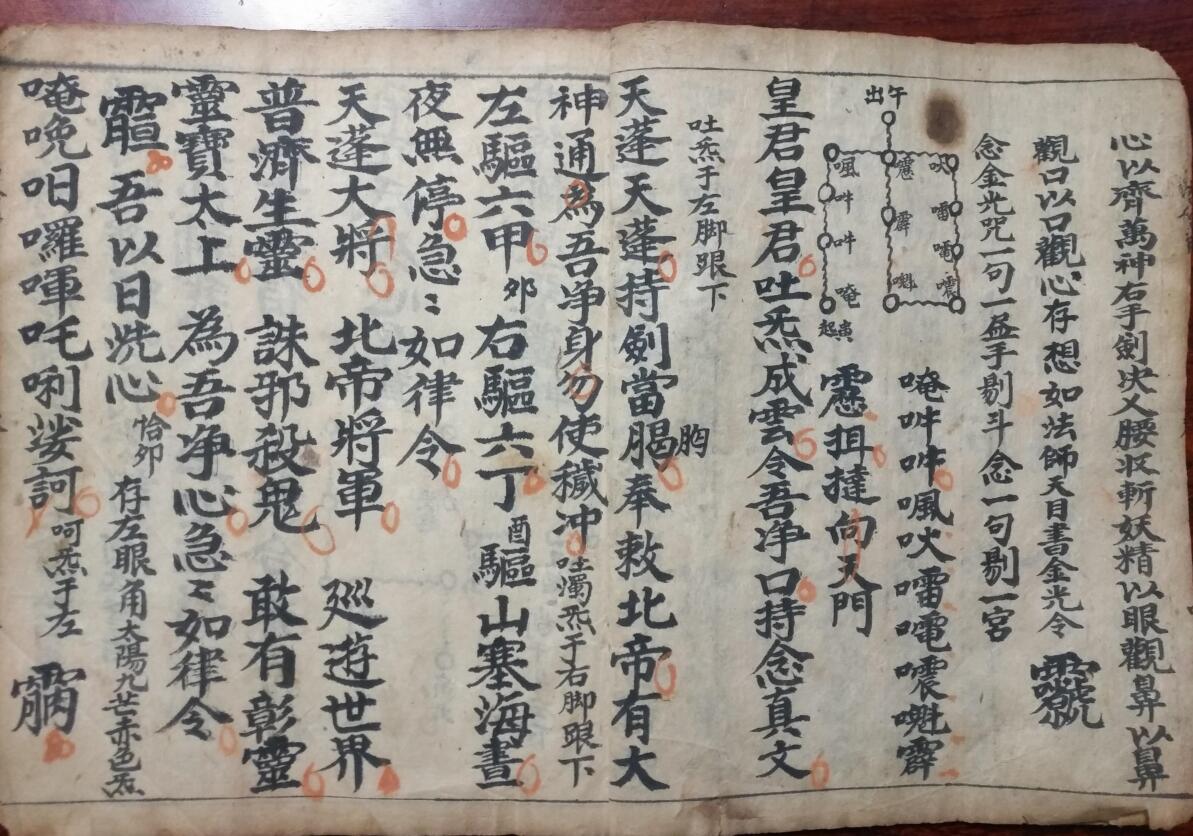 心以齊萬神右手劍决乂腰収斬妖精以眼觀鼻以鼻
觀口以口觀心存想如法師天目書金光令
念金光咒一句一益手剔斗念一句剔一宮
唵吽吽㗾吙𠹌電震魁霹
靂抯撻向天門
出午
吙
靂
㗾
霹
吽
電
吽
魁
震
唵
起
皇君皇君吐炁成雲令吾净口持念真文
吐炁于左脚跟下
天蓬天蓬持劍當胸奉敕北帝有大
神通為吾净身勿使穢冲吐濁炁于右脚跟下
左驅六甲卯右驅六丁酉驅山塞海晝
夜無停急〻如律令
天蓬大將北帝將軍廵遊世界
普濟生靈誅邪殺鬼敢有彰靈
靈寶太上為吾净心急〻如律令
吾以日洗心恰卯存左眼角太陽九芒赤色炁
唵晚呬囉㖇吒唎娑訶呵炁于左